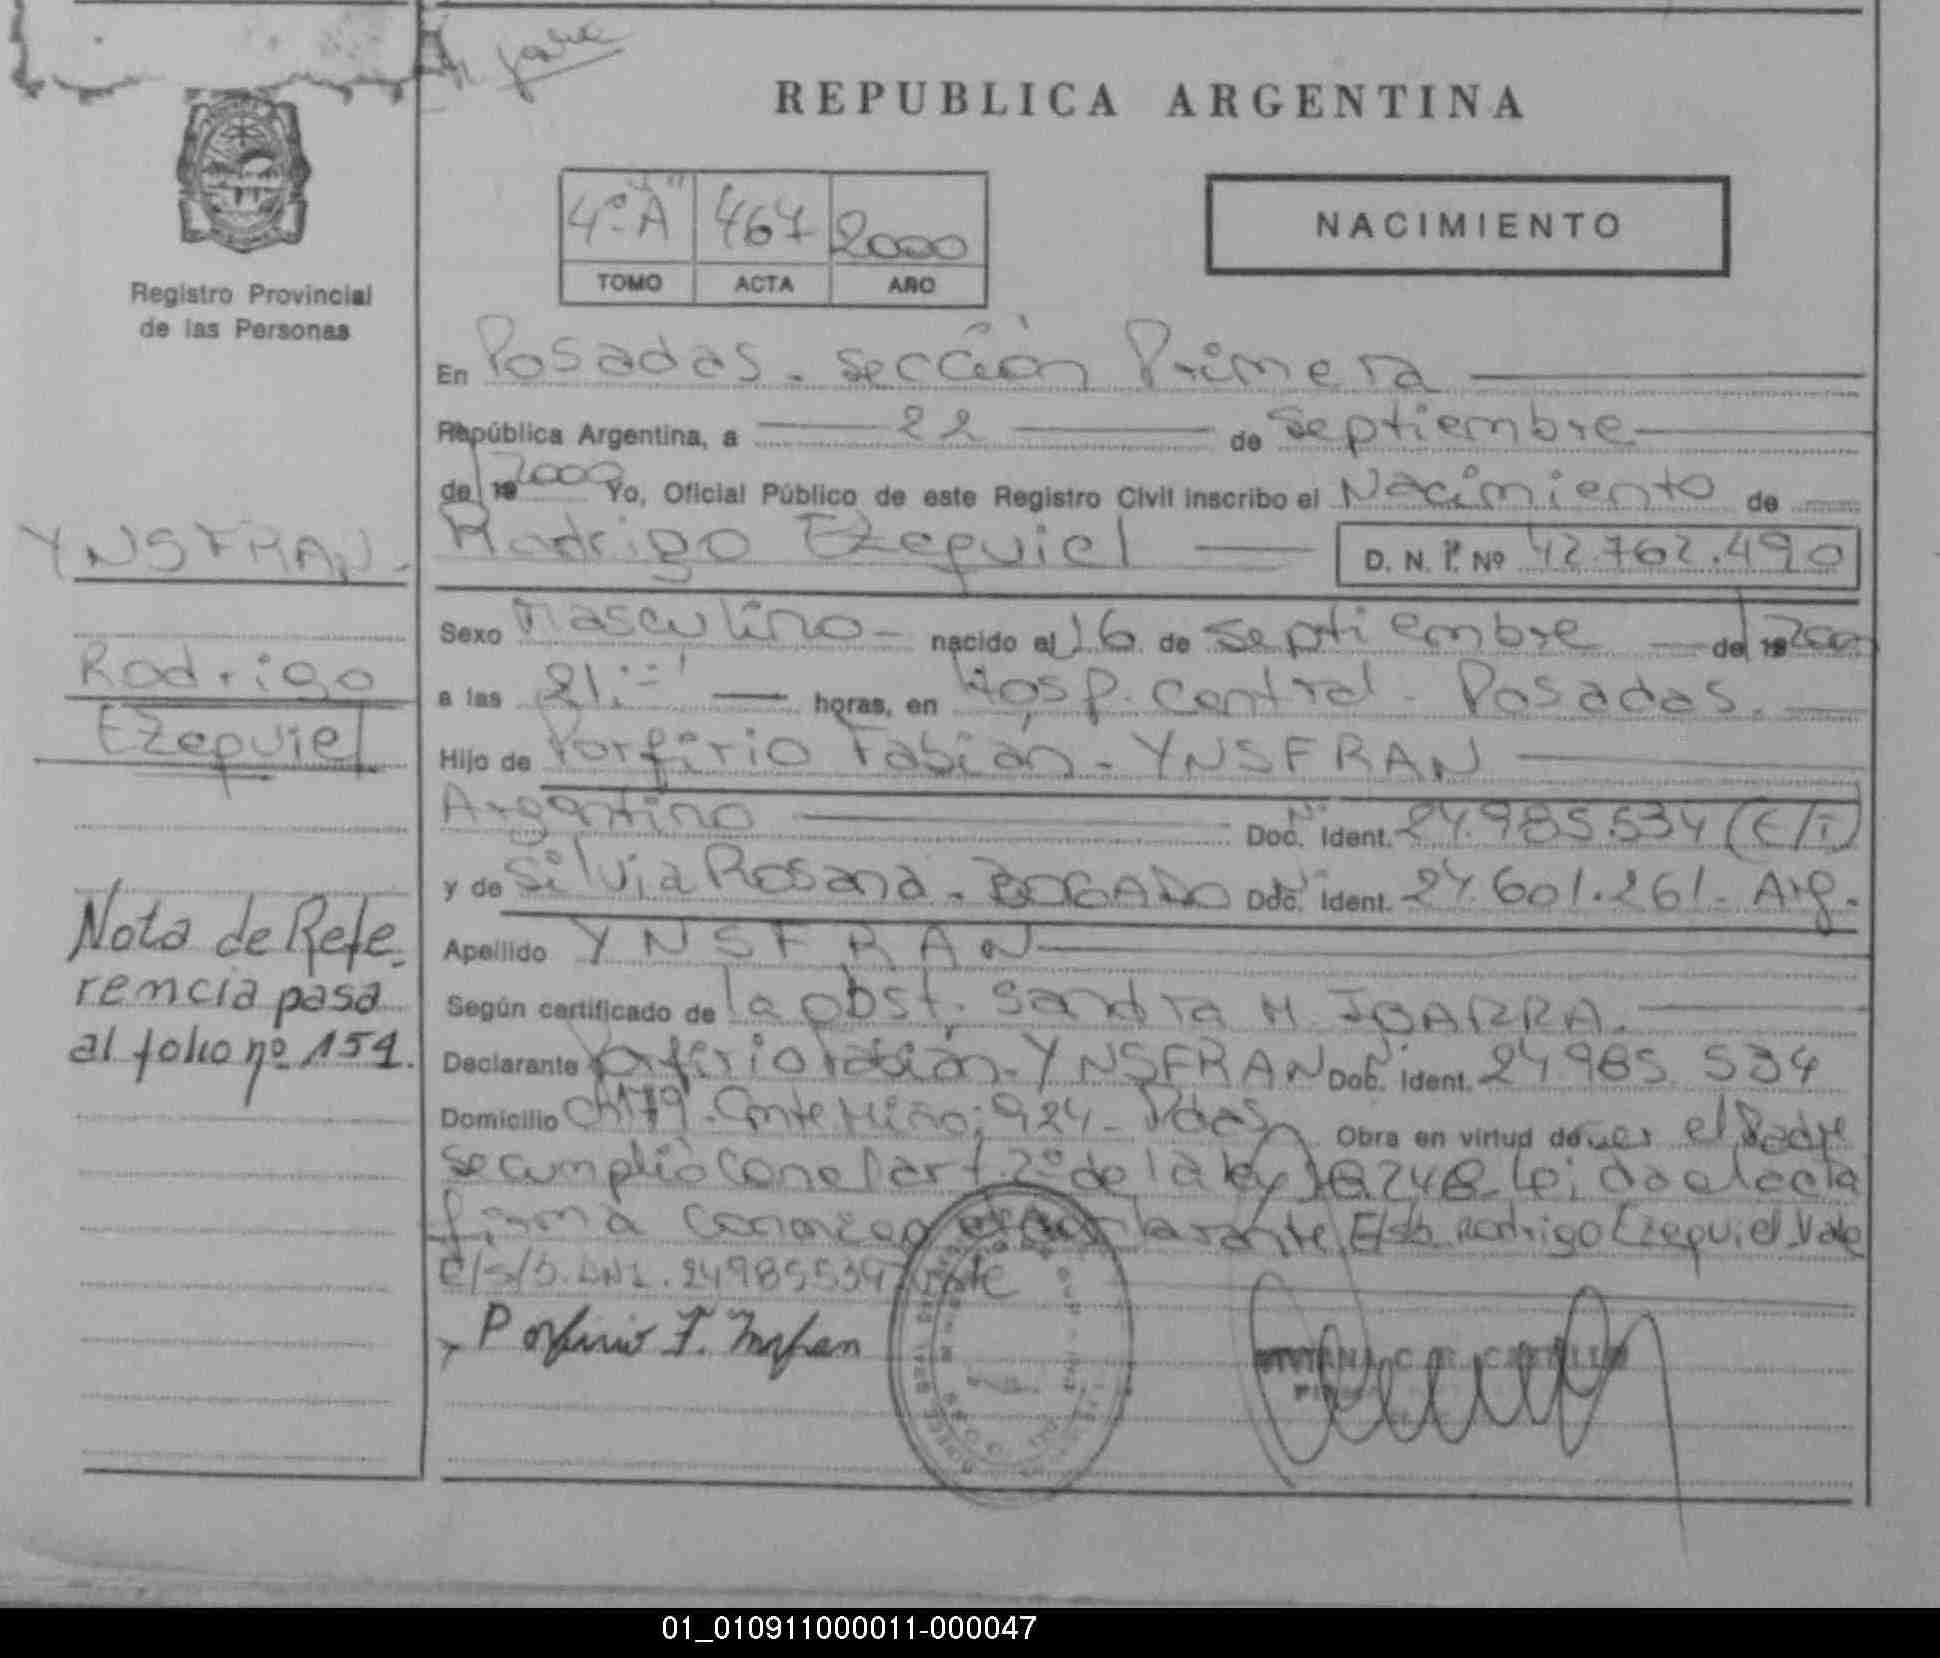 REPUBLICA ARGENTINA
4º "A" 467 2000
TOMO ACTA AÑO
NACIMIENTO
Registro Provincial
de las Personas
En Posadas. sección Primera
República Argentina, a 22 de septiembre
de 19 2000 Yo, Oficial Público de este Registro Civil inscribo el Nacimiento de
Rodrigo Ezequiel D. N. I. Nº 42.762.490
Sexo Masculino - nacido el 16 de septiembre de 19 2000
a las 21:-- horas, en Hosp. Central - Posadas.
Hijo de Porfirio Fabián - YNSFRAN
Argentino Doc. Ident. 24.985.534 (E/T)
y de Silvia Rosana - BOGADO Doc. Ident. 24.601.261 - Arg.
Apellido YNSFRAN
Según certificado de la obst. Sandra M IBARRA.
Declarante Porfirio Fabián - YNSFRAN Doc. Ident. 24 985 534
Domicilio Ch 179 - 924 - Pdas Obra en virtud de ser el Padre
se cumplió con el art. 2º de la ley 18.248 - leida el acta
firma conmigo el declarante. E/s/b. Rodrigo Ezequiel Vale
E/s/b. DNI. 24985534 vale
Porfirio F. Ynsfran
YNSFRAN -
Rodrigo
Ezequiel
Nota de Refe-
rencia pasa
al folio nº 151.
01_010911000011-000047